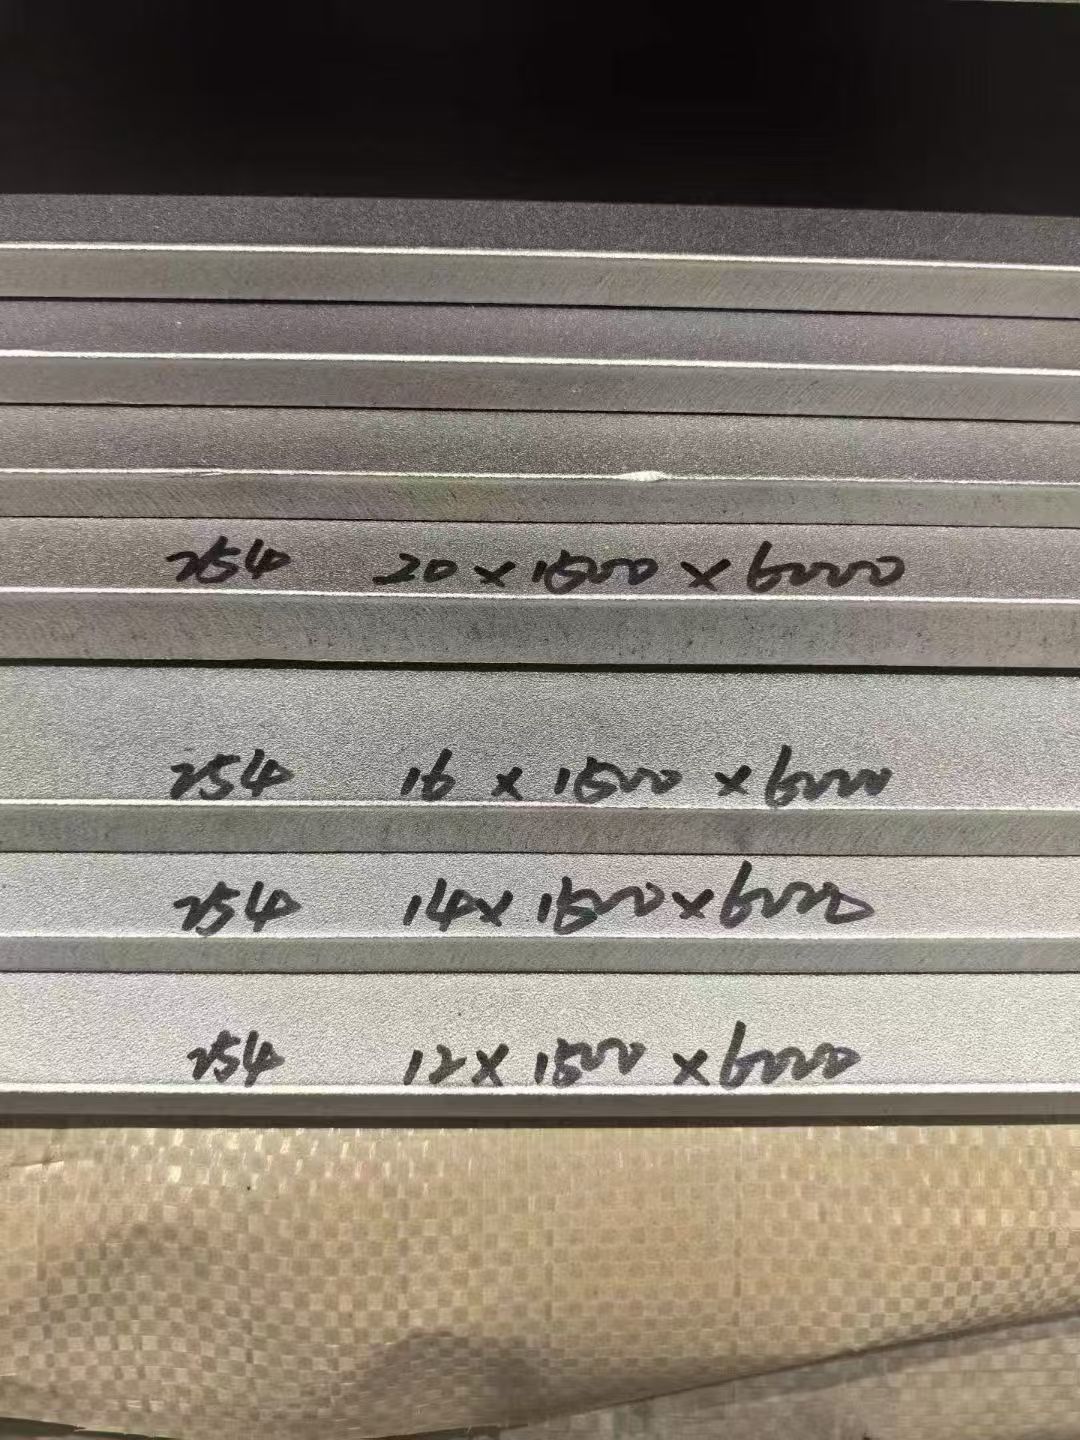 254 20 × 1500 × 6000
254 16 × 1500 × 6000
254 14 × 1500 × 6000
254 12 × 1500 × 6000